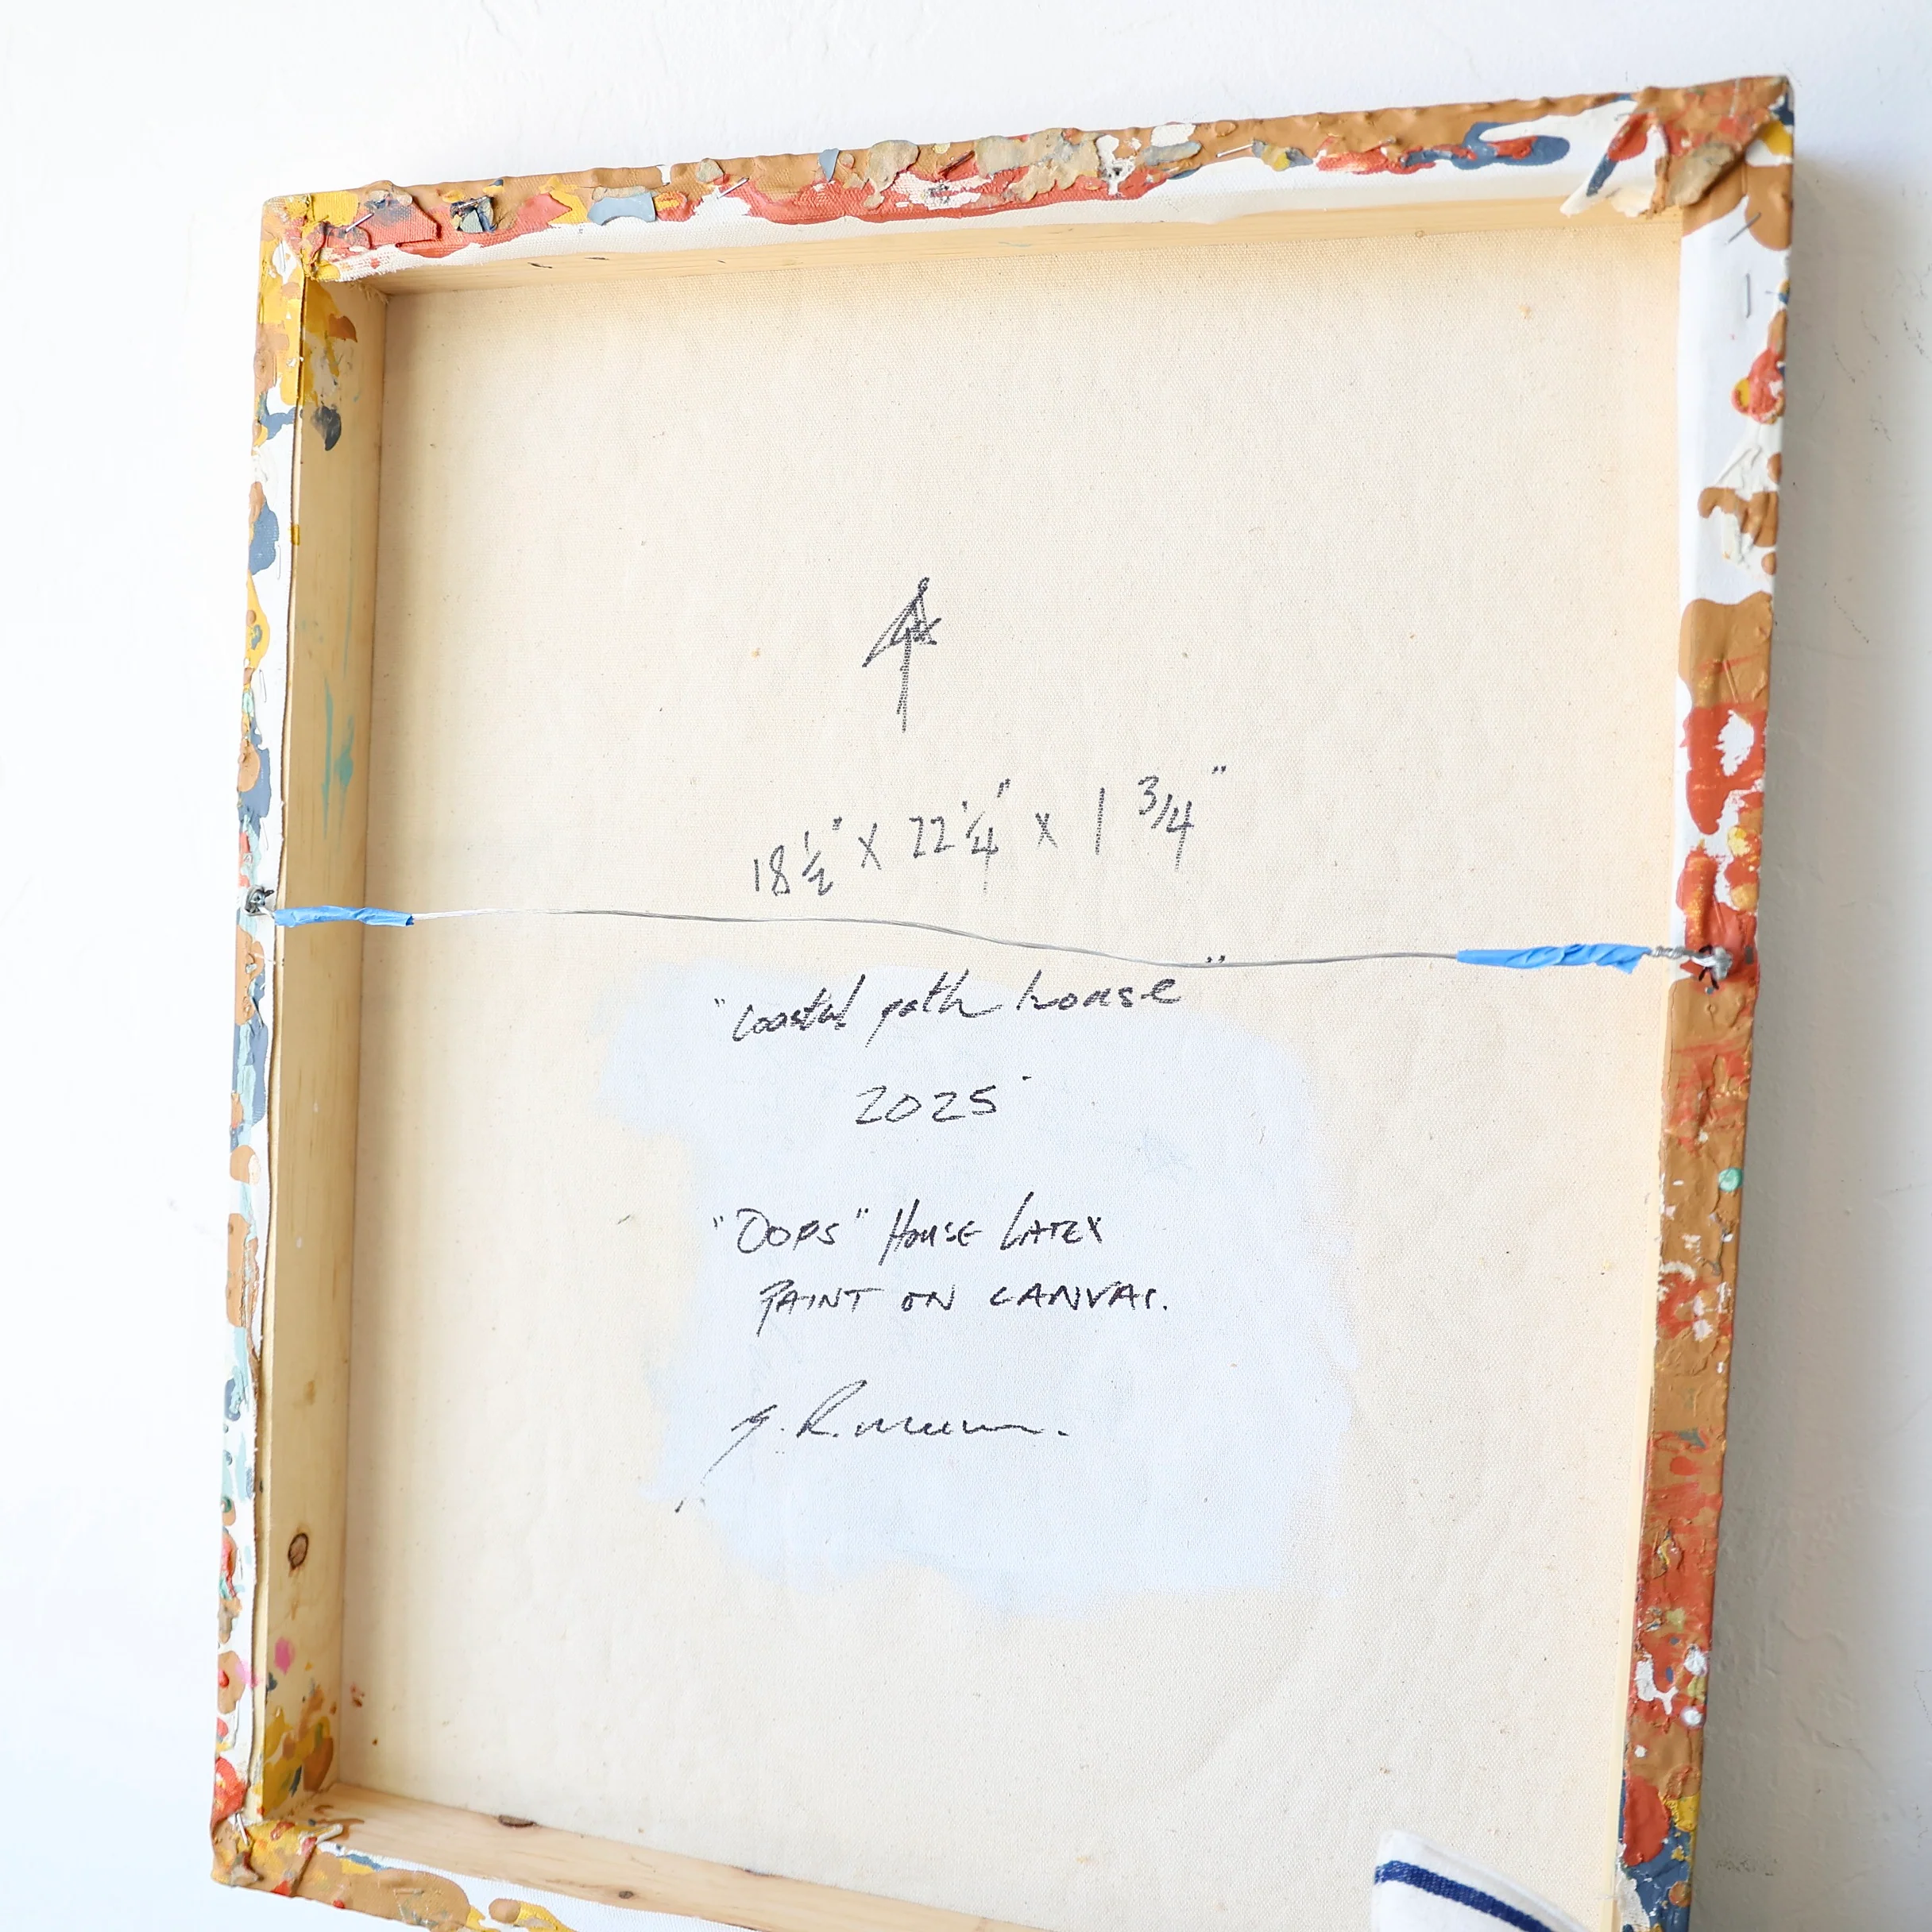 18 ½" x 22 ¼" x 1 3/4"
"Coastal path house"
2025
"OOPS" HOUSE LATEX
PAINT ON CANVAS.